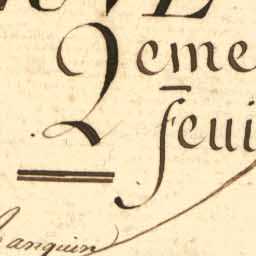 2eme
feui
Janquin